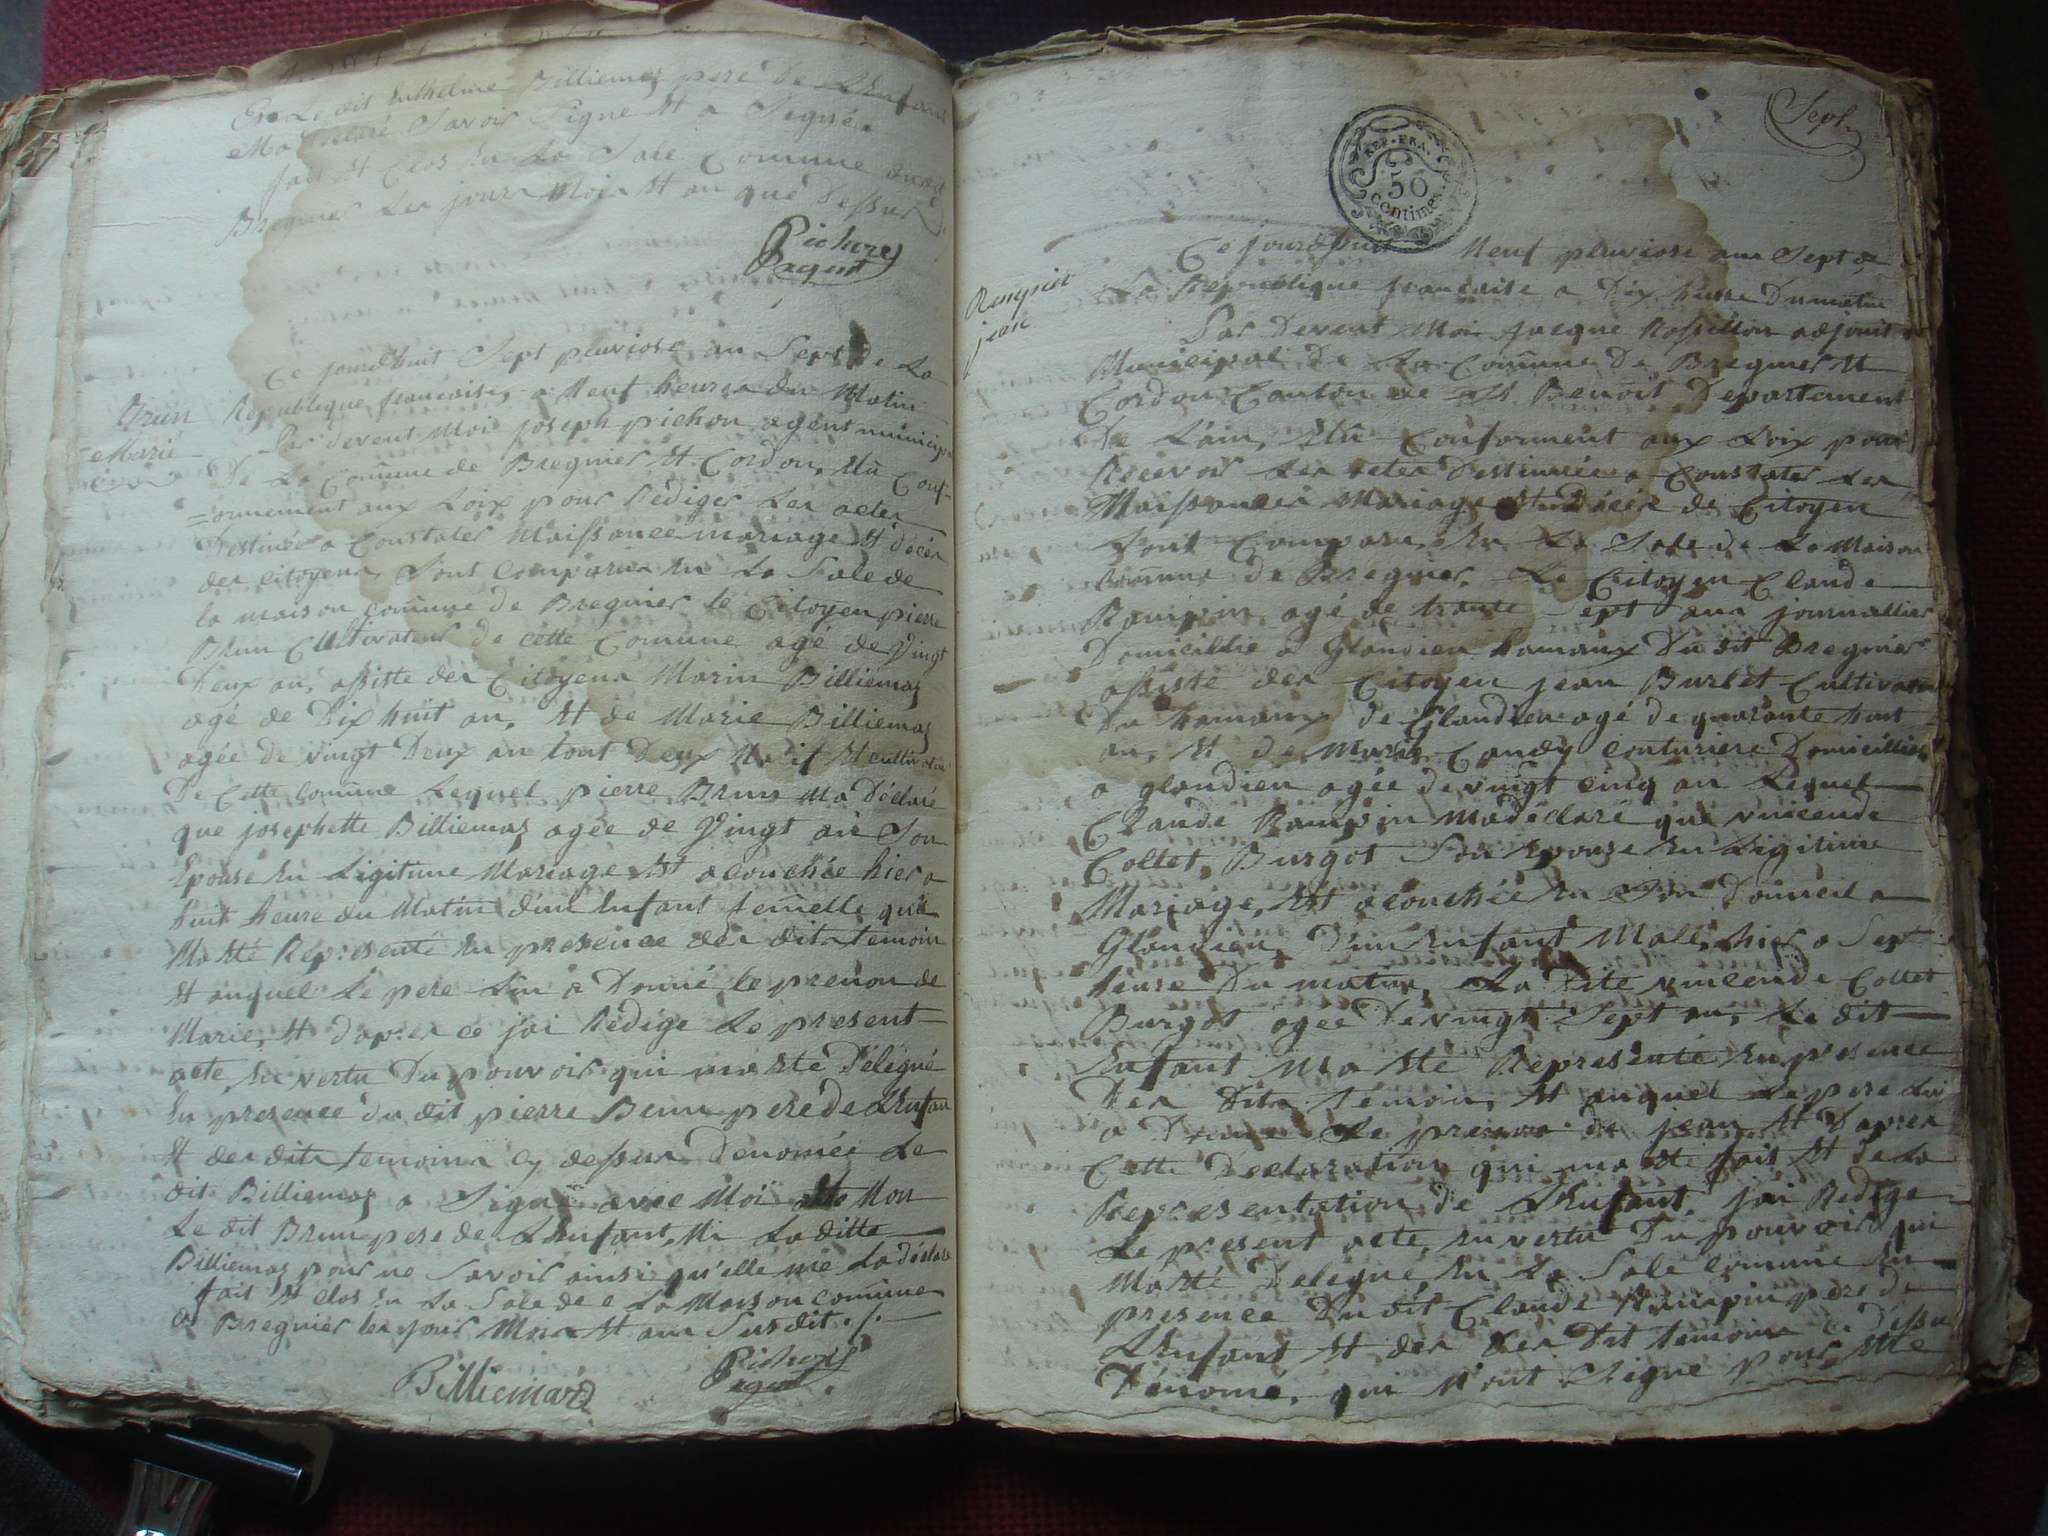 Et Le dit Anthelme Billiemaz pere de L'Enfant
Ma declaré Savoir Signe Et a Signé.
fait Et Clos En La Sale Comune dudit
Bregnier Les jours Moi Et an que Dessus
Pichon
agent
Ce jourdhuit Sept pluviose an Sept de La
Brun
Marie
Republique francaise, a Neuf heures du Matin
Par devent Moi joseph pichon agent municipa
De La Comune de Bregnier Et Cordon, Elû Conf-
=ormement aux Loix pour Rédiger Les actes
Destinée a Constater Naissance mariage Et décès
des citoyens, Sont Comparus En La Sale de
la maison comune de Bregnier le Citoyen pierre
Brun Cultivateur de cette Comune agé de Vingt
Deux an, assiste des Citoyens Marin Billiemaz
agé de Dix huit an, Et de Marie Billiemaz
agée de vingt Deux an tout Deux Natif Et cultivateur
De Cette comune Lequel pierre Brun Ma Déclaré
que josephette Billiemaz agée de Vingt an Son
Epouse En Ligitime Mariage Est acouchée hier a
huit heure du Matin d'un Enfant femelle qu'il
Ma Eté Représenté En presence des dits temoin
Et auquel Le pere Lui a Donné le prenon de
Marie, Et d'apres ce jai Rédigé Le present
acte, En vertu Du pouvoir qui ma Eté Délégué
En presence du dit pierre Brun pere de L'Enfan
Et des dits temoins cy dessus Dénomés Le
dit Billiemaz a Signé avec Moi Non
Le dit Brun pere de L'Enfant, Ni La ditte
Billiemaz pour ne Savoir ainsi qu'elle me La déclaré
fait Et clos En La Sale de La Maison comune
de Bregnier les jour Mois Et an Susdit ./.
Billiemard
Pichon
agent.
Sept.
REP. FRA.
50
centimes
Rempin
jean
Ce jourdhuit Neuf pluviose an Sept de
La Republique francaise a Dix heure Dumatin
Par Devent Moi Jacque Rossillon adjoint
Municipal De La Comune De Bregnier Et
Cordon Canton de St Benoit Departement
De L'ain, Elû Conforment aux Loix pour
Recevoir Les actes Destinée a Constater Les
Naissances Mariage Et Décès de Citoyen
Sont Comparu, En La Sale de La Maison
Comune de Bregnier, Le Citoyen Claude
Rampin agé de trante Sept ans journallier
Domicillie a Glandieu hamaux Du dit Bregnier
assisté des Citoyen jean Burlet Cultivateur
Du hamaux de Glandieu agé de quarante huit
an, Et de Marie Candy couturiere Domicilliée
a glandieu agée de vingt cinq an Lequel
Claude Rampin ma déclaré que vincende
Collet Burgot Son Epouse En Ligitime
Mariage, Est acouchée En Son Domicil a
Glandieu, D'un Enfant Malle, hier a Sept
heure Du matin, La Dite vincende Collet
Burgot agée De vingt Sept an, Le dit
Enfant Ma Eté Représenté En presence
Des Dits Temoin, Et auquel Le pere Lui
a Donné Le prenon de jean, Et D'apres
Cette Declaration qui ma Eté fait, Et de La
Representation de L'Enfant, jai Redigé
Le present acte, En vertu Du pouvoir qui
Ma Eté Délégué, En La Sale Comune En
presence Du dit Claude Rampin pere de
L'Enfant Et des Dit temoins cy dessu
Dénomé, qui N'ont Signe pour Etre